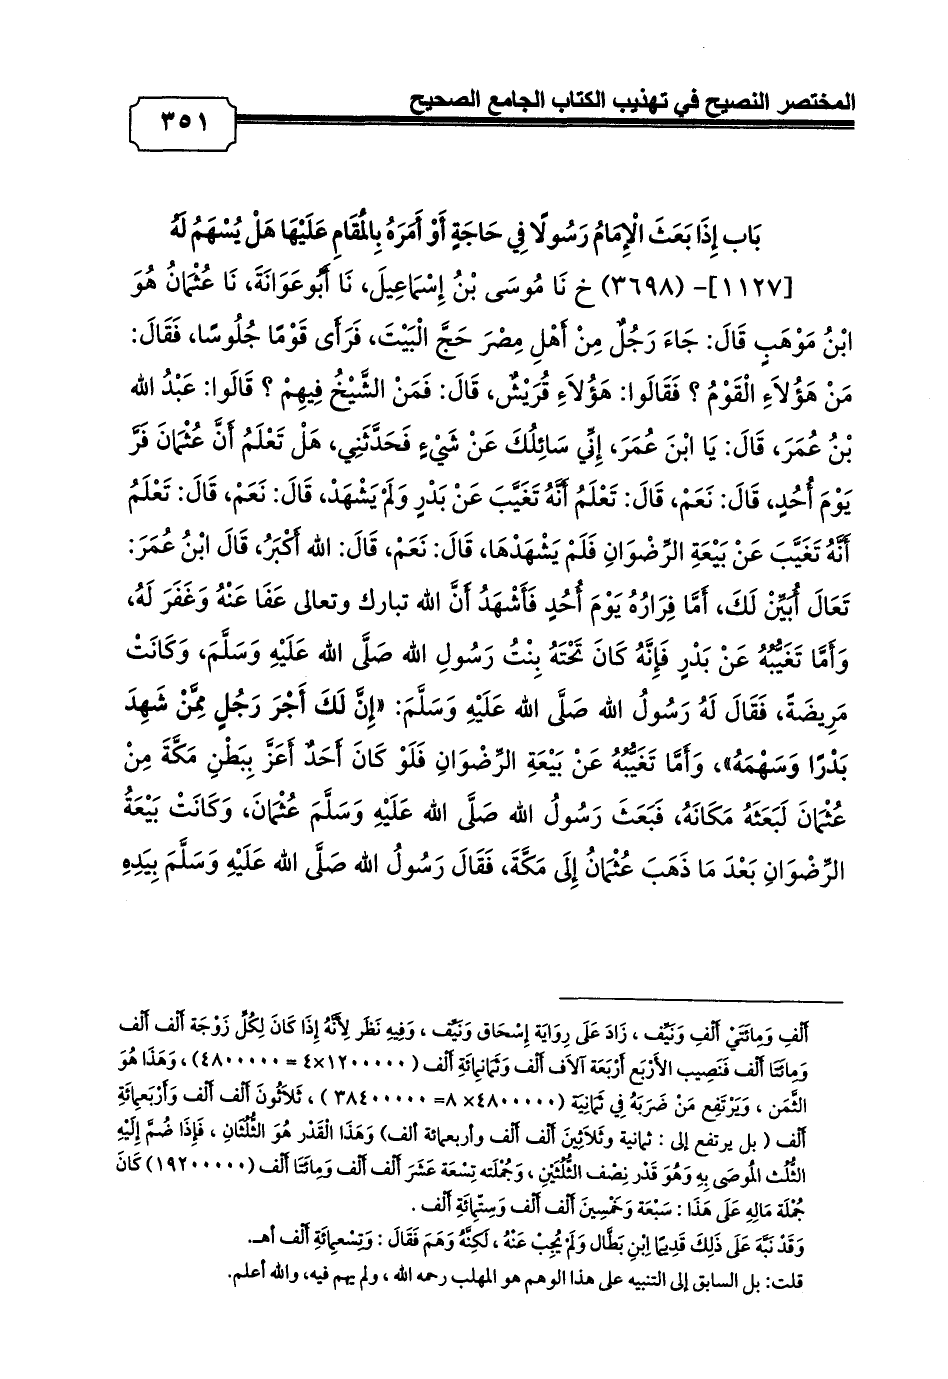 المختصر النصيح في تهذيب الكتاب الجامع الصحيح
٣٥١
بَاب إِذَا بَعَثَ الْإِمَامُ رَسُولًا فِي حَاجَةٍ أَوْ أَمَرَهُ بِالْمُقَامِ عَلَيْهَا هَلْ يُسْهَمُ لَهُ
[١١٢٧]- (٣٦٩٨) خ نَا مُوسَى بْنُ إِسْمَاعِيلَ، نَا أَبُو عَوَانَةَ، نَا عُثْمَانُ هُوَ
ابْنُ مَوْهَبٍ قَالَ: جَاءَ رَجُلٌ مِنْ أَهْلِ مِصْرَ حَجَّ الْبَيْتَ، فَرَأَى قَوْمًا جُلُوسًا، فَقَالَ:
مَنْ هَؤُلَاءِ الْقَوْمُ ؟ فَقَالُوا: هَؤُلَاءِ قُرَيْشٌ، قَالَ: فَمَنْ الشَّيْخُ فِيهِمْ ؟ قَالُوا: عَبْدُ الله
بْنُ عُمَرَ، قَالَ: يَا ابْنَ عُمَرَ، إِنِّي سَائِلُكَ عَنْ شَيْءٍ فَحَدِّثْنِي، هَلْ تَعْلَمُ أَنَّ عُثْمَانَ فَرَّ
يَوْمَ أُحُدٍ، قَالَ: نَعَمْ، قَالَ: تَعْلَمُ أَنَّهُ تَغَيَّبَ عَنْ بَدْرٍ وَلَمْ يَشْهَدْ، قَالَ: نَعَمْ، قَالَ: تَعْلَمُ
أَنَّهُ تَغَيَّبَ عَنْ بَيْعَةِ الرِّضْوَانِ فَلَمْ يَشْهَدْهَا، قَالَ: نَعَمْ، قَالَ: الله أَكْبَرُ، قَالَ ابْنُ عُمَرَ:
تَعَالَ أُبَيِّنْ لَكَ، أَمَّا فِرَارُهُ يَوْمَ أُحُدٍ فَأَشْهَدُ أَنَّ الله تبارك وتعالى عَفَا عَنْهُ وَغَفَرَ لَهُ،
وَأَمَّا تَغَيُّبُهُ عَنْ بَدْرٍ فَإِنَّهُ كَانَ تَحْتَهُ بِنْتُ رَسُولِ الله صَلَّى الله عَلَيْهِ وَسَلَّمَ، وَكَانَتْ
مَرِيضَةً، فَقَالَ لَهُ رَسُولُ الله صَلَّى الله عَلَيْهِ وَسَلَّمَ: «إِنَّ لَكَ أَجْرَ رَجُلٍ مِمَّنْ شَهِدَ
بَدْرًا وَسَهْمَهُ»، وَأَمَّا تَغَيُّبُهُ عَنْ بَيْعَةِ الرِّضْوَانِ فَلَوْ كَانَ أَحَدٌ أَعَزَّ بِبَطْنِ مَكَّةَ مِنْ
عُثْمَانَ لَبَعَثَهُ مَكَانَهُ، فَبَعَثَ رَسُولُ الله صَلَّى الله عَلَيْهِ وَسَلَّمَ عُثْمَانَ، وَكَانَتْ بَيْعَةُ
الرِّضْوَانِ بَعْدَ مَا ذَهَبَ عُثْمَانُ إِلَى مَكَّةَ، فَقَالَ رَسُولُ الله صَلَّى الله عَلَيْهِ وَسَلَّمَ بِيَدِهِ
أَلْفِ وَمِائَتَيْ أَلْفٍ وَنَيِّف ، زَادَ عَلَى رِوَايَة إِسْحَاق وَنَيِّف ، وَفِيهِ نَظَر لِأَنَّهُ إِذَا كَانَ لِكُلِّ زَوْجَة أَلْف أَلْف
وَمِائَتَا أَلْف فَنَصِيب الْأَرْبَع أَرْبَعَة آلَاف أَلْف وَثَمَانِمِائَةِ أَلْف ( ١٢٠٠٠٠٠×٤ = ٤٨٠٠٠٠٠) ، وَهَذَا هُوَ
الثُّمُن ، وَيَرْتَفِع مَنْ ضَرَبَهُ فِي ثَمَانِيَة (٤٨٠٠٠٠٠× ٨= ٣٨٤٠٠٠٠٠ ) ، ثَلَاثُونَ أَلْف أَلْف وَأَرْبَعمِائَةِ
أَلْف ( بل يرتفع إلى : ثمانية وثَلَاثِينَ أَلْف أَلْف وأربعمائة ألف) وَهَذَا الْقَدْر هُوَ الثُّلُثَانِ ، فَإِذَا ضُمَّ إِلَيْهِ
الثُّلُث الْمُوصَى بِهِ وَهُوَ قَدْر نِصْف الثُّلُثَيْنِ ، وَجُمْلَته تِسْعَة عَشَرَ أَلْف أَلْف وَمِائَتَا أَلْف (١٩٢٠٠٠٠٠) كَانَ
جُمْلَة مَالِهِ عَلَى هَذَا : سَبْعَة وَخَمْسِينَ أَلْف أَلْف وَسِتّمِائَةِ أَلْف .
وَقَدْ نَبَّهَ عَلَى ذَلِكَ قَدِيمًا اِبْن بَطَّال وَلَمْ يُجِبْ عَنْهُ ، لَكِنَّهُ وَهَمَ فَقَالَ : وَتِسْعمِائَةِ أَلْف أهـ.
قلت: بل السابق إلى التنبيه على هذا الوهم هو المهلب رحمه الله ، ولم يهم فيه، والله أعلم.